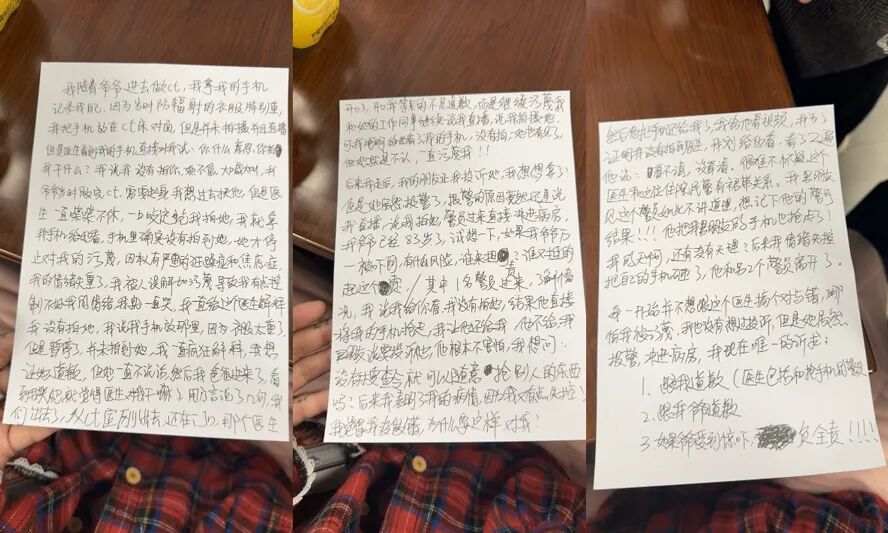 我陪着爷爷进去做ct,我拿我的手机
记录我自己,因为当时防辐射的衣服特别重,
我把手机站在ct床对面,但是并未拍摄并且直播
但是医生看到我的手机直接对我说:你什么意思,你拍
我干什么?我说我没有拍你,她不信,大喊大叫,我
爷爷当时做完ct,需要起身,我想过去扶他,但是医
生一直紧紧不休,一口咬定说我拍她,我就拿
我手机给她看,手机里确实没有拍到她,她才停
止对我的污蔑,因权有严重的狂躁症和焦虑症,
我的情绪失重了,我被人误解加污蔑导致我有点控
制不好我的情绪,我就一直哭,我一直给这个医生解释
我没有拍她,我说我手机放那里,因为衣服太重了
但是暂停了,并未拍到她,我一直疯狂解释,我想
让她道歉,但她一直不说话,然后我爸爸进来了,看
到我哭他就觉得医生对我干嘛了,用方言说了几句,我
们出去了,从ct室刚出去,还在门口,那个医生
开口了,可我等来的不是道歉,而是继续污蔑我
和她的工作同事继续说我直播,说我拍摄她,
可我明明给她看了我的手机,没有拍,她也看见了,
但她就是不认,一直污蔑我!!
后来我走后,我的朋友让我投诉她,我想想算了
但是她居然报警了,报警的原因竟然还是说
我直播,说我拍她,警员过来直接冲进病房,
我爷爷已经83岁了,试想一下,如果我爷爷万
一被吓到,有什么风险,谁来担?谁又担的
起这个责/其中1名警员过来,了解情
况,我说我给你看,我没有拍她,结果他直接
将我的手机抢走,我让他还给我,他不给,我
已经说要投诉他,他根本不害怕,我想问:
没有搜查令就可以随意抢别人的东西
吗?后来我表明了我的病情,因为我有点失控,
我觉得我没做错,为什么要这样对我?
然后他把手机还给我了,我给他看视频,并为了
证明我没有拍到医生,并划给他看,看了2遍
他说:看不清,没看清,很难不怀疑这个
医生和这位住院民警有裙带关系。我男朋友
见这个警员如此不讲道理,想记下他的警号
结果!!!他把我男朋友的手机也抢走了!
我就无问,还有没有天理?后来我情绪失控
把自己的手机砸了,他和另2个警员离开了。
我一开始并不想跟这个医生搞个对与错,哪
怕我被污蔑,我也没有想过投诉,但是她居然
报警,冲进病房,我现在唯一的诉求:
1. 跟我道歉(医生包括和抢手机的警员
2. 跟我爷道歉
3. 如果爷爷受到惊吓,负全责!!!!